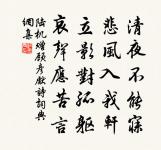 清夜不能寐
悲風入我軒
立影對孤軀
哀聲應苦言
陆机赠顾彦猷诗词典
网集